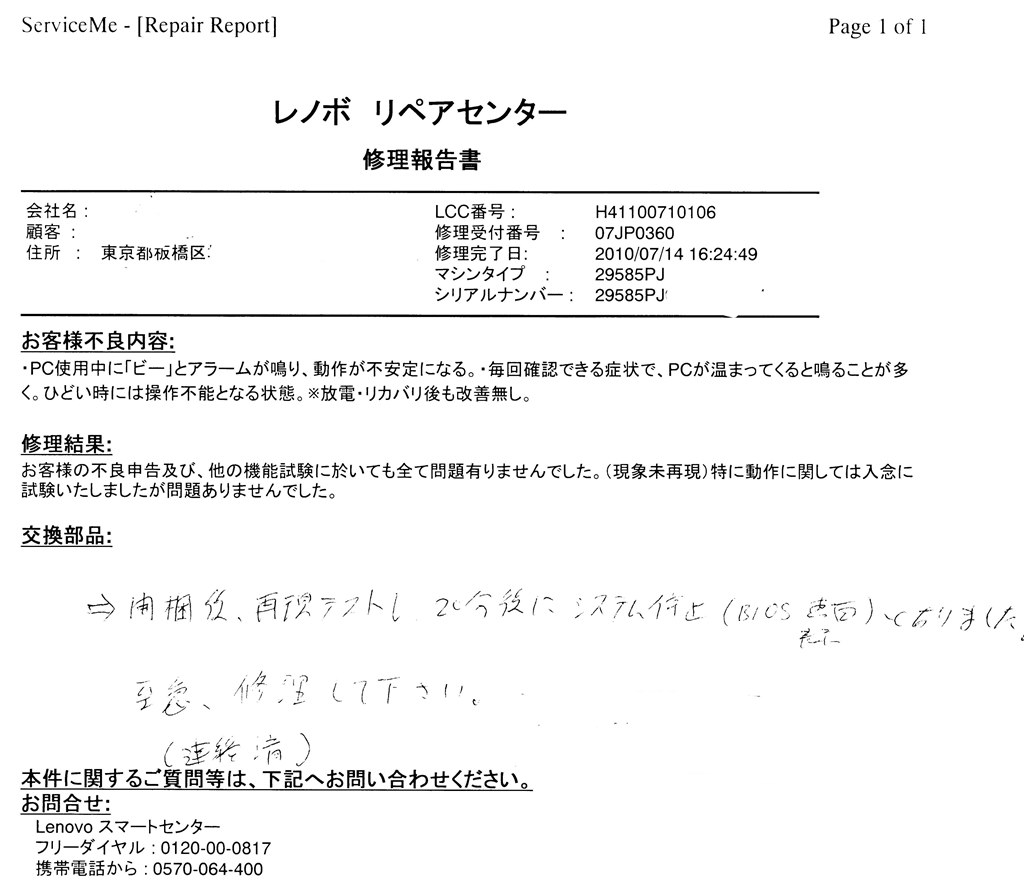 ServiceMe - [Repair Report]
Page 1 of 1
レノボ リペアセンター
修理報告書
会社名 :
顧客 :
住所 : 東京都板橋区
LCC番号 : H41100710106
修理受付番号 : 07JP0360
修理完了日: 2010/07/14 16:24:49
マシンタイプ : 29585PJ
シリアルナンバー : 29585PJ
お客様不良内容:
・PC使用中に「ビー」とアラームが鳴り、動作が不安定になる。・毎回確認できる症状で、PCが温まってくると鳴ることが多
く。ひどい時には操作不能となる状態。※放電・リカバリ後も改善無し。
修理結果:
お客様の不良申告及び、他の機能試験に於いても全て問題有りませんでした。（現象未再現）特に動作に関しては入念に
試験いたしましたが問題ありませんでした。
交換部品:
⇒ 開梱後、再現テストし 20分後に システム停止 (BIOS 画面) となりました。
表示
至急、修理して下さい。
(連絡済)
本件に関するご質問等は、下記へお問い合わせください。
お問合せ:
Lenovo スマートセンター
フリーダイヤル : 0120-00-0817
携帯電話から : 0570-064-400